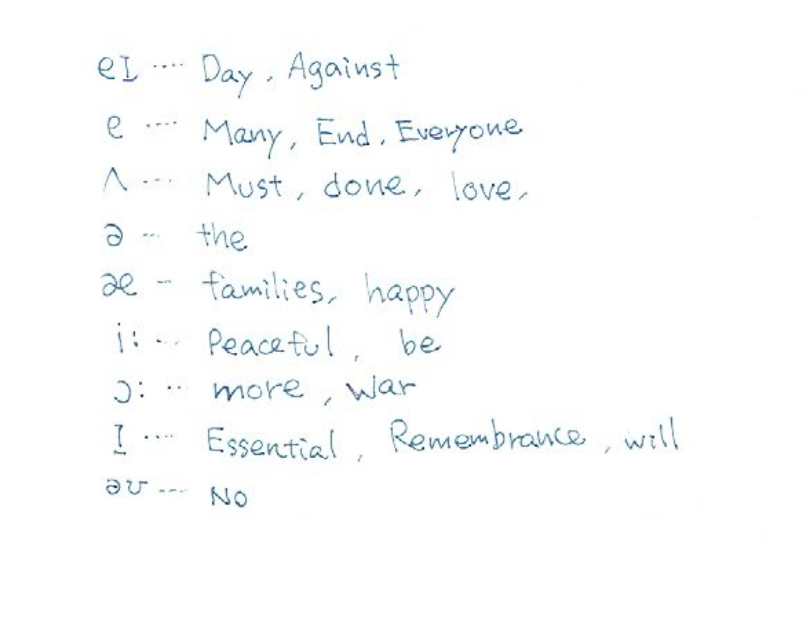 eɪ ···· Day, Against
e ···· Many, End, Everyone
ʌ ···· Must, done, love,
ə ··· the
æ - families, happy
i: ··· Peaceful, be
ɔ: ·· more, war
ɪ ···· Essential, Remembrance, will
əʊ ··· No